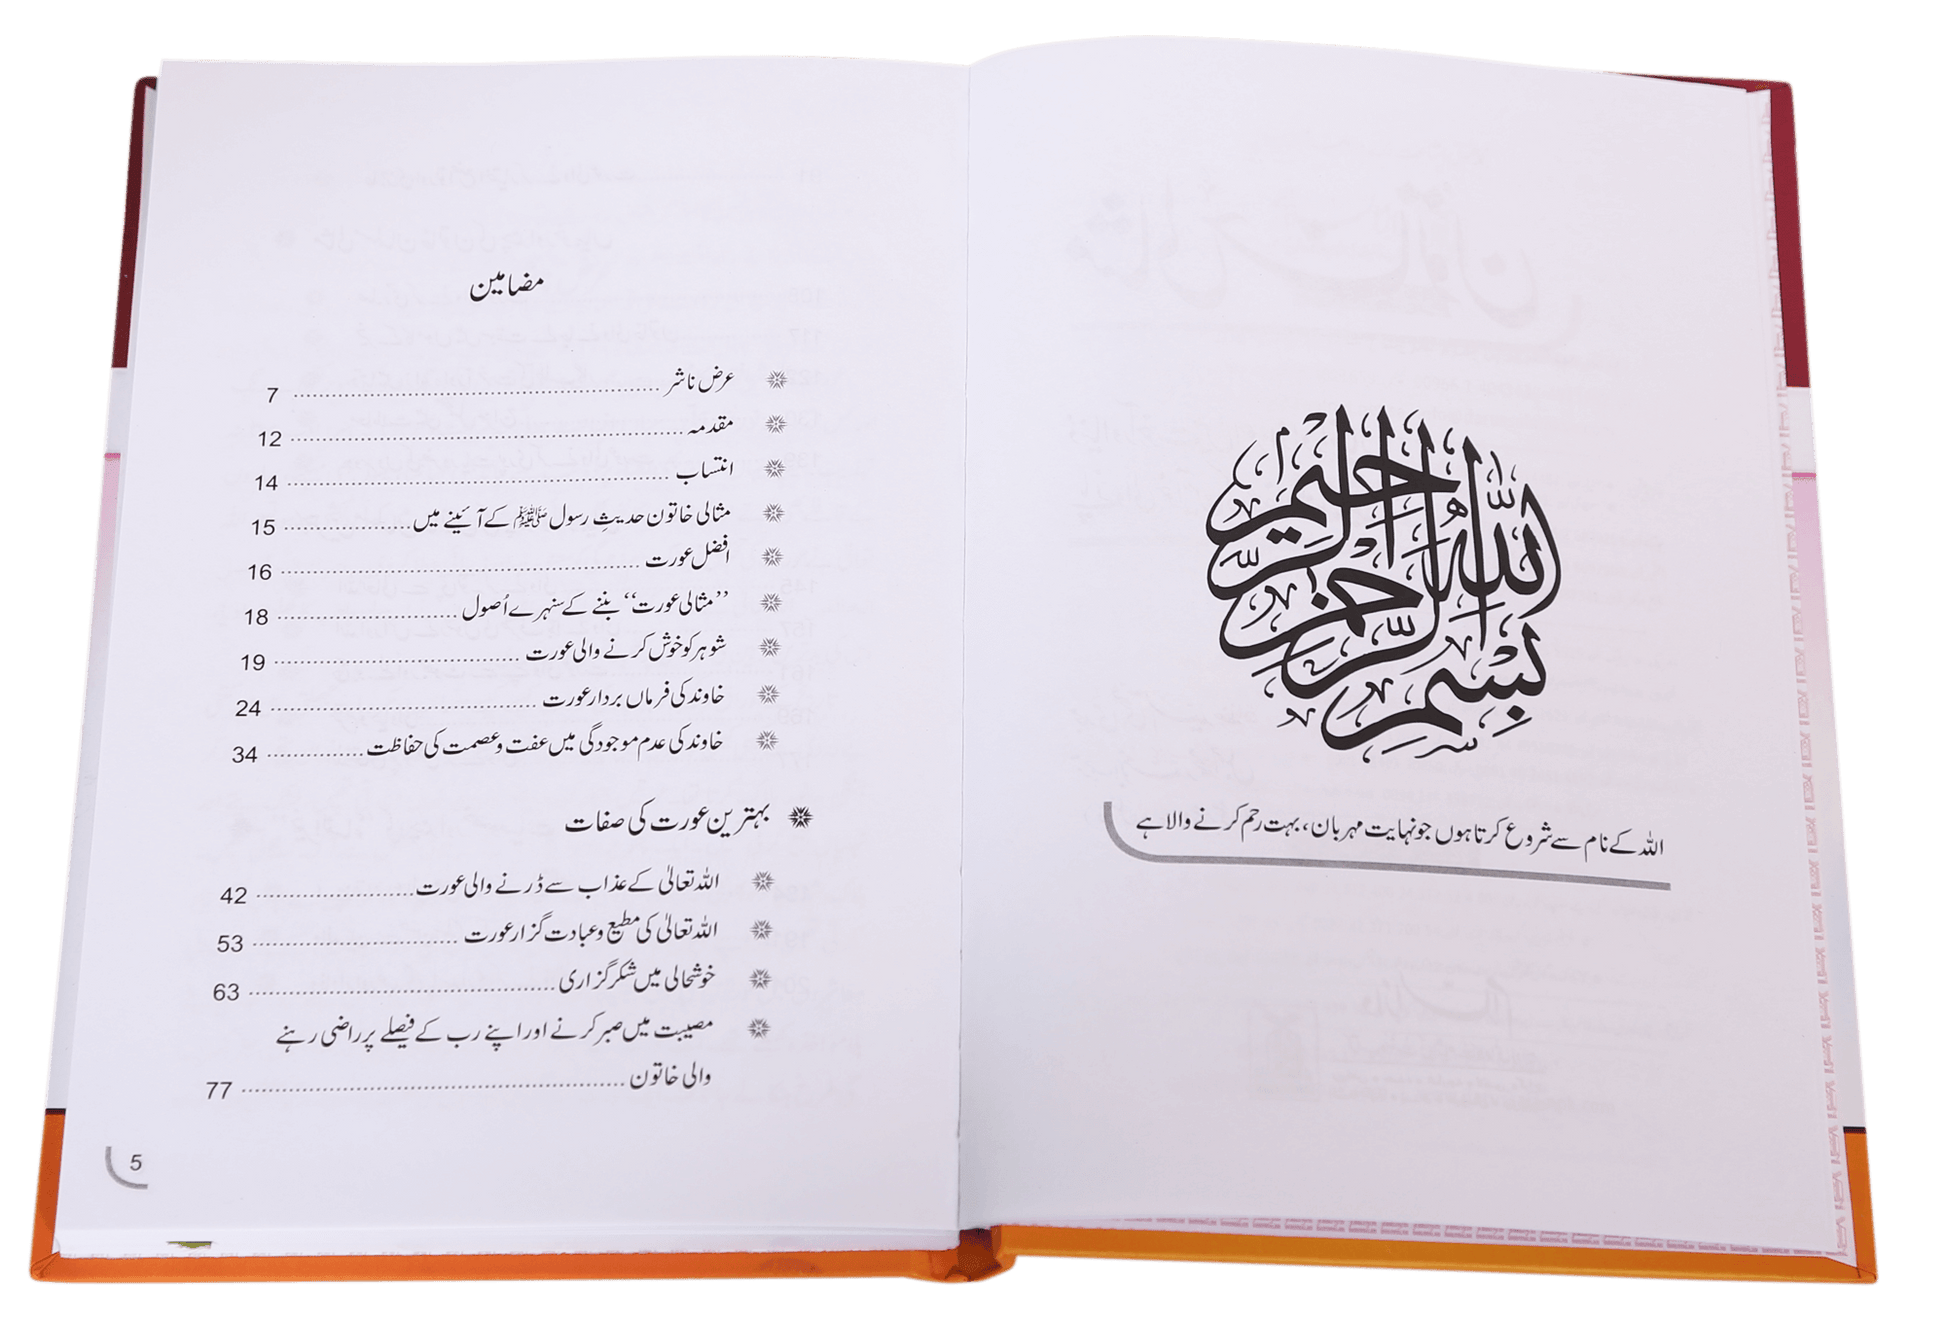 بِسْمِ اللهِ الرَّحْمٰنِ الرَّحِيْمِ
اللہ کے نام سے شروع کرتا ہوں جو نہایت مہربان، بہت رحم کرنے والا ہے
مضامین
عرض ناشر ........ 7
مقدمہ ........ 12
انتساب ........ 14
مثالی خاتون حدیثِ رسول ﷺ کے آئینے میں ........ 15
افضل عورت ........ 16
’’مثالی عورت‘‘ بننے کے سنہرے اُصول ........ 18
شوہر کو خوش کرنے والی عورت ........ 19
خاوند کی فرماں بردار عورت ........ 24
خاوند کی عدم موجودگی میں عفت و عصمت کی حفاظت ........ 34
بہترین عورت کی صفات
اللہ تعالیٰ کے عذاب سے ڈرنے والی عورت ........ 42
اللہ تعالیٰ کی مطیع و عبادت گزار عورت ........ 53
خوشحالی میں شکر گزاری ........ 63
مصیبت میں صبر کرنے اور اپنے رب کے فیصلے پر راضی رہنے
والی خاتون ........ 77
5